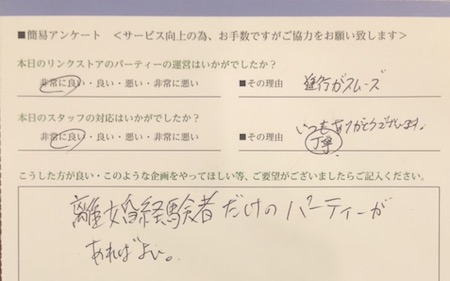 ■簡易アンケート <サービス向上の為、お手数ですがご協力をお願い致します>
本日のリンクストアのパーティーの運営はいかがでしたか?
非常に良い・良い・悪い・非常に悪い ■その理由 進行がスムーズ
本日のスタッフの対応はいかがでしたか? いつもありがとうございます。
非常に良い・良い・悪い・非常に悪い ■その理由 丁寧
こうした方が良い・このような企画をやってほしい等、ご要望がございましたらご記入ください。
離婚経験者だけのパーティーが
あればよい。